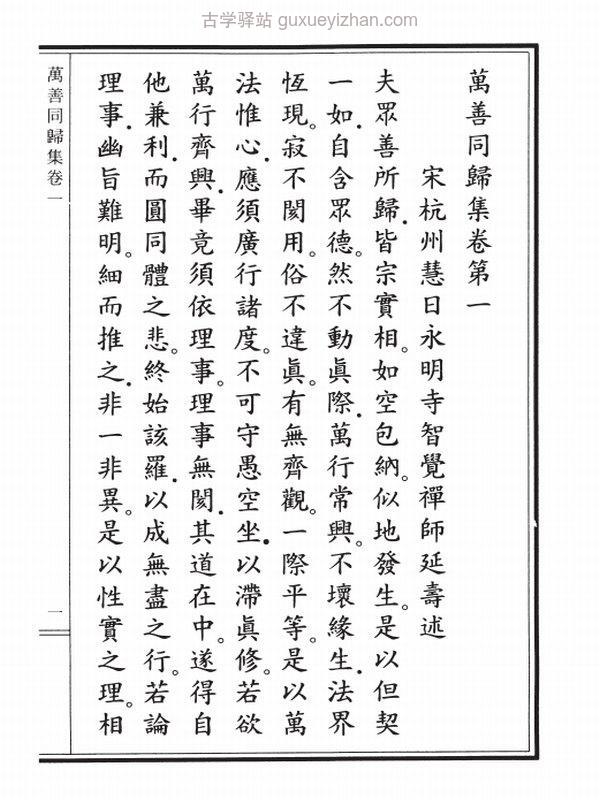 古学驿站 guxueyizhan.com
萬善同歸集卷第一
宋杭州慧日永明寺智覺禪師延壽述
夫眾善所歸.皆宗實相。如空包納。似地發生。是以但契
一如.自含眾德。然不動眞際.萬行常興。不壞緣生.法界
恆現。寂不閡用。俗不違眞。有無齊觀。一際平等。是以萬
法惟心.應須廣行諸度。不可守愚空坐.以滯眞修。若欲
萬行齊興.畢竟須依理事。理事無閡.其道在中。遂得自
他兼利.而圓同體之悲。終始該羅.以成無盡之行。若論
理事.幽旨難明。細而推之.非一非異。是以性實之理。相
萬善同歸集卷一
一